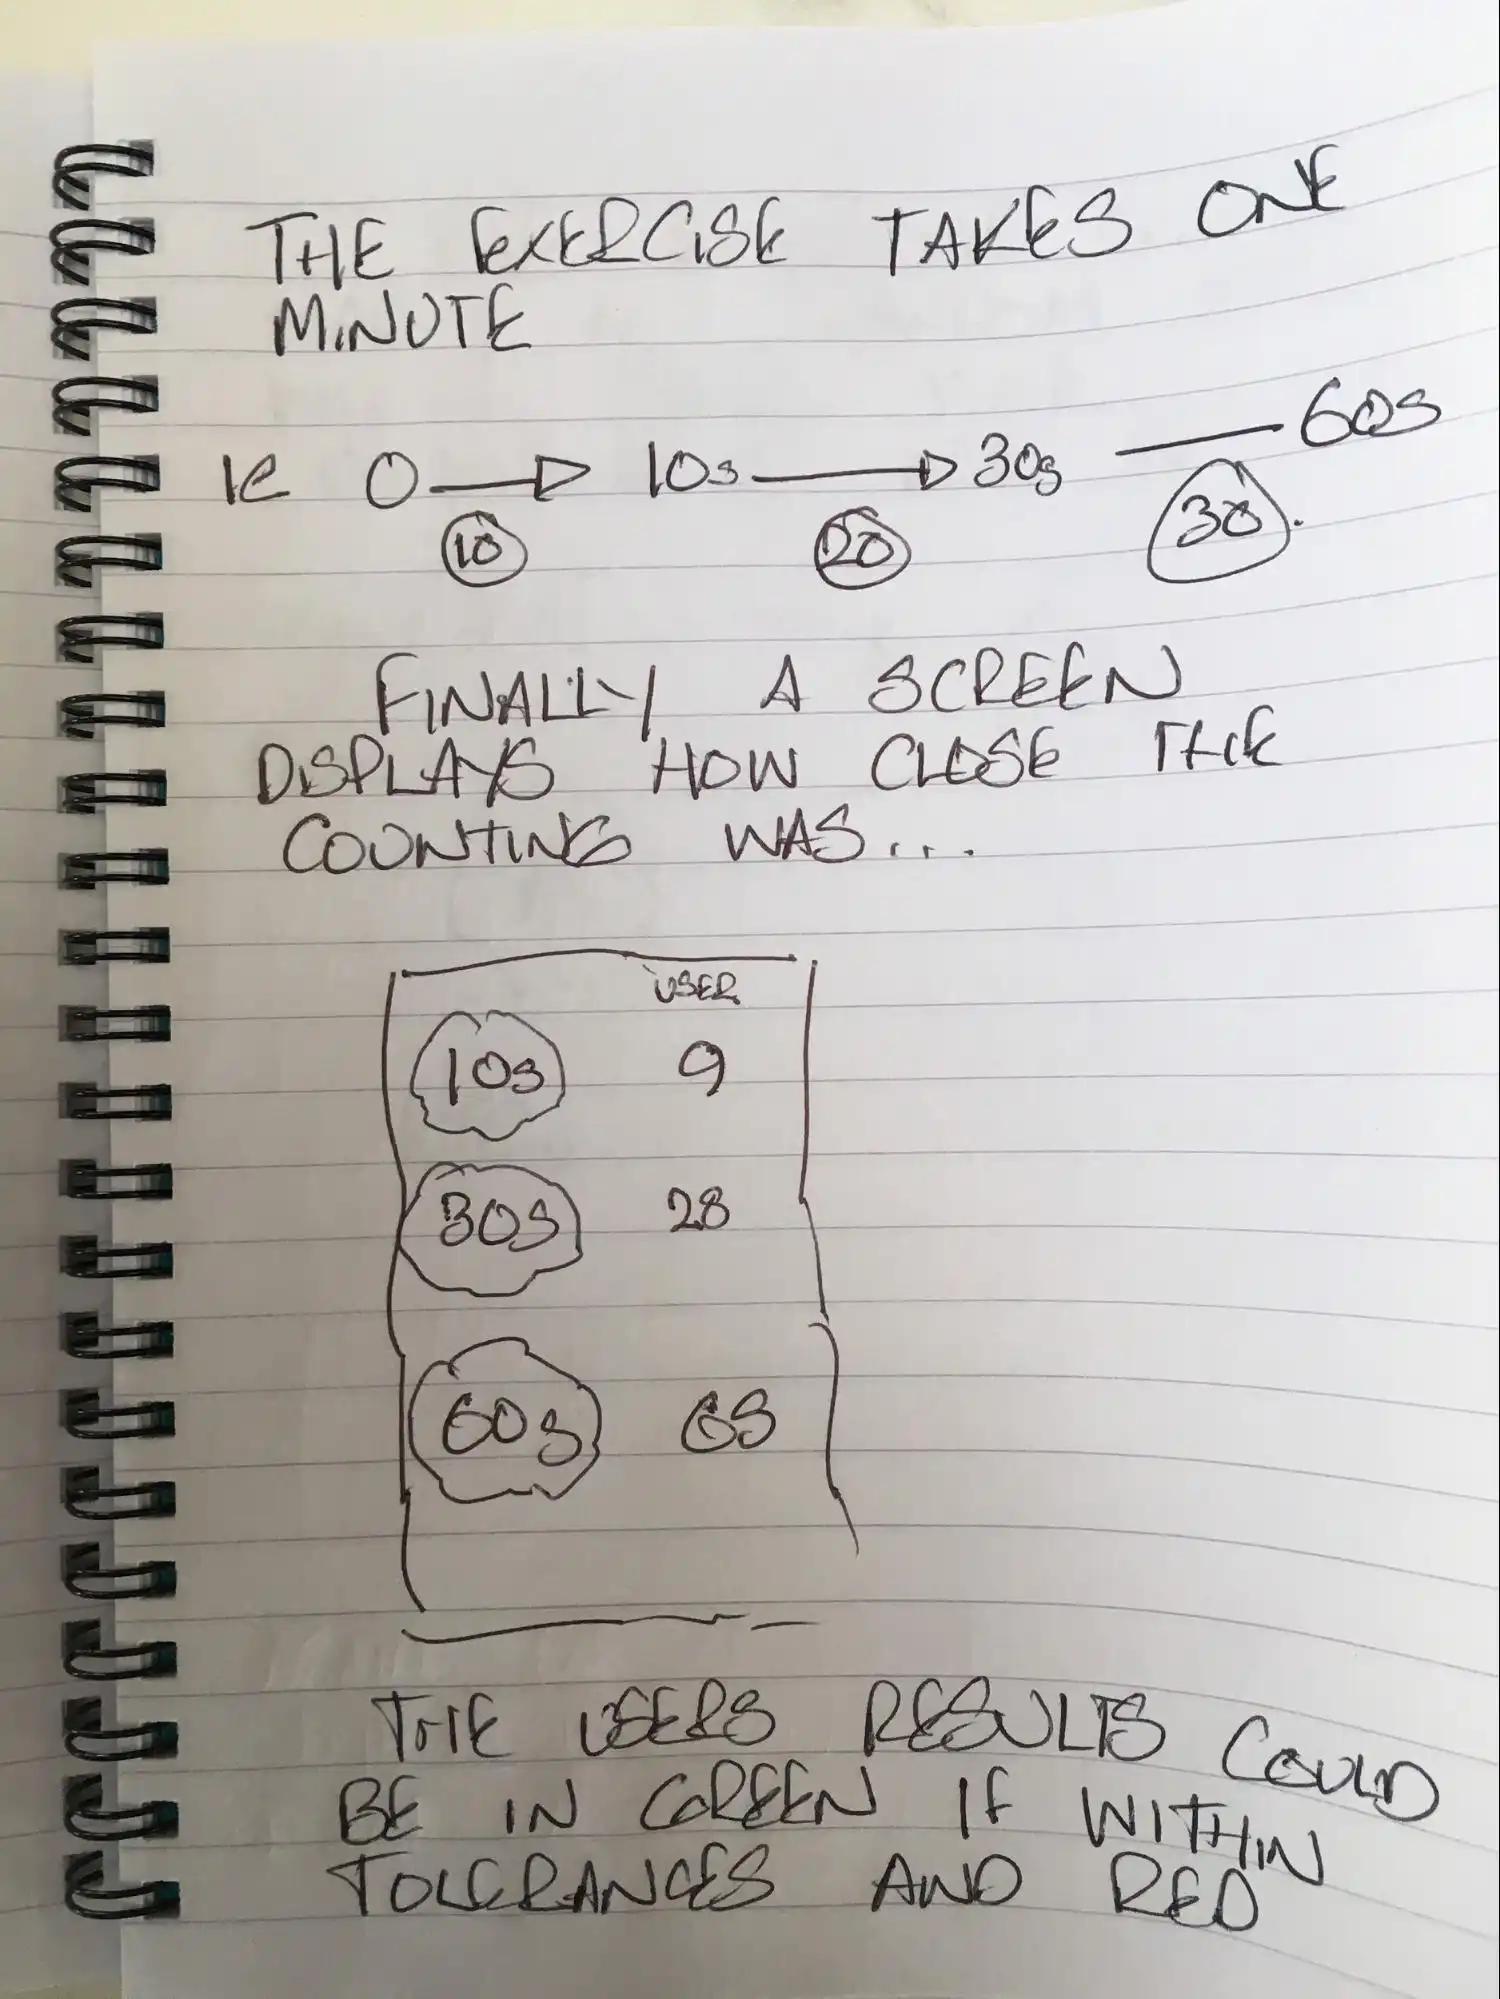 THE EXERCISE TAKES ONE
MINUTE
IE 0 → 10s → 30s — 60s
10 20 30.
FINALLY A SCREEN
DISPLAYS HOW CLOSE THE
COUNTING WAS...
USER
10s 9
30s 28
60s 63
THE USERS RESULTS COULD
BE IN GREEN IF WITHIN
TOLERANCES AND RED